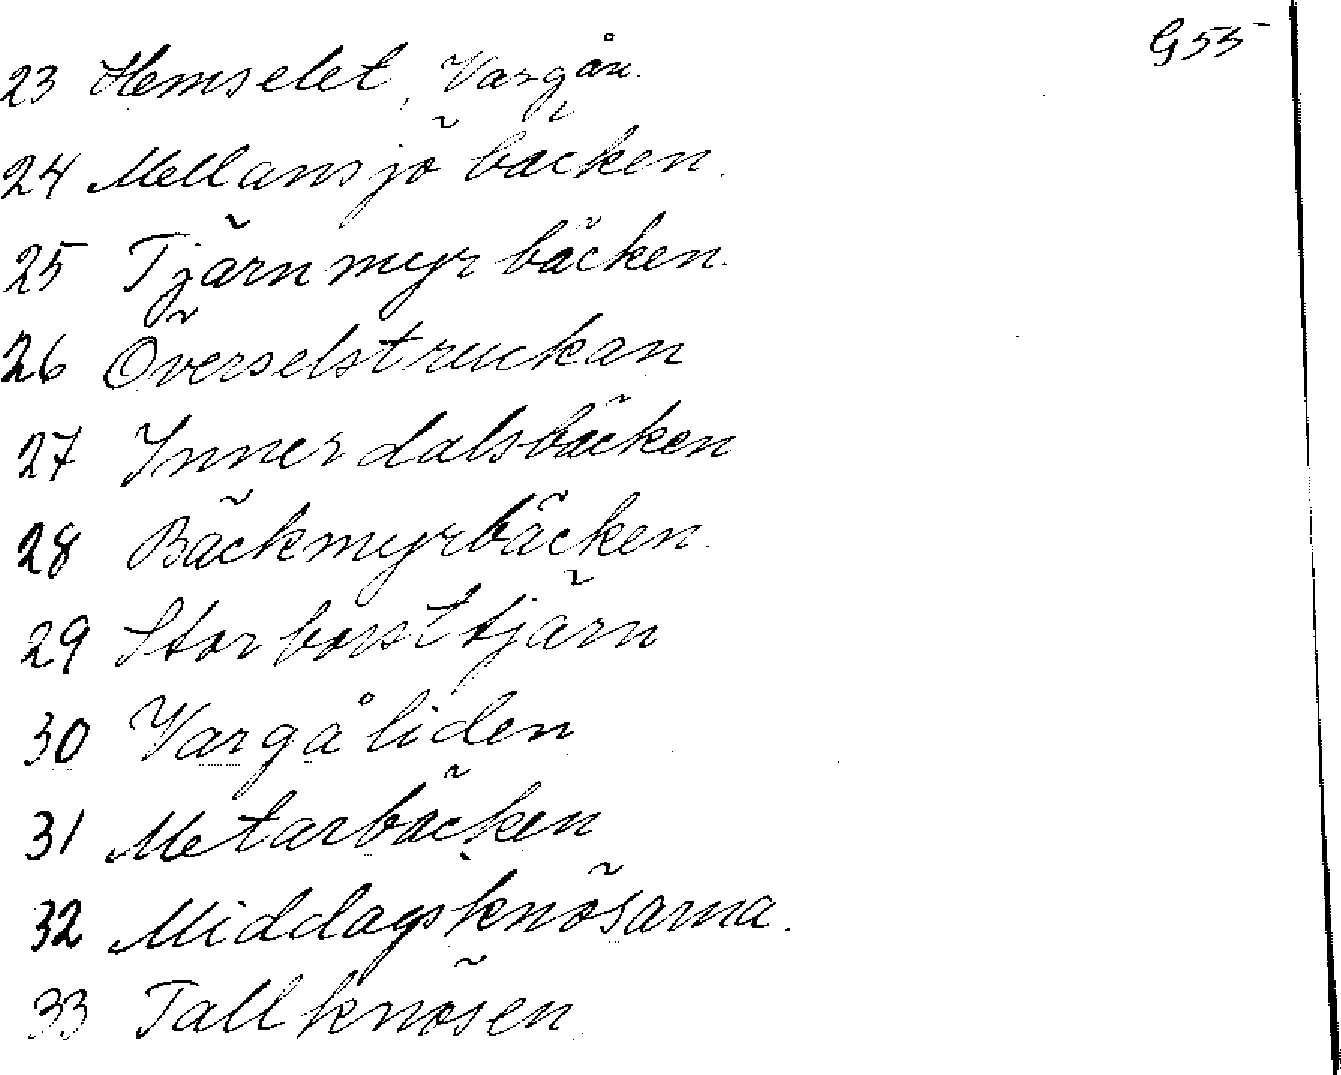 G55
23 Hemselet, Vargån.
24 Mellansjöbäcken.
25 Tjärnmyrbäcken.
26 Överselstruckan
27 Innerdalsbäcken
28 Bäckmyrbäcken.
29 Storborsttjärn
30 Vargåliden
31 Metarbäcken
32 Middagsknösarna.
33 Tallknösen